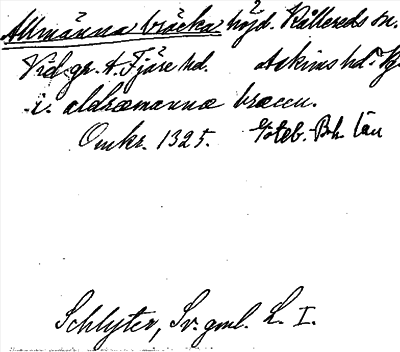 Allmänna bräcka höjd. Kållereds sn.
Vid gr. t. Fjäre hd. Askims hd.
i. aldræmannæ bræccu.
Omkr. 1325. Göteb. Boh. län
Schlyter, Sv. gml. L. I.